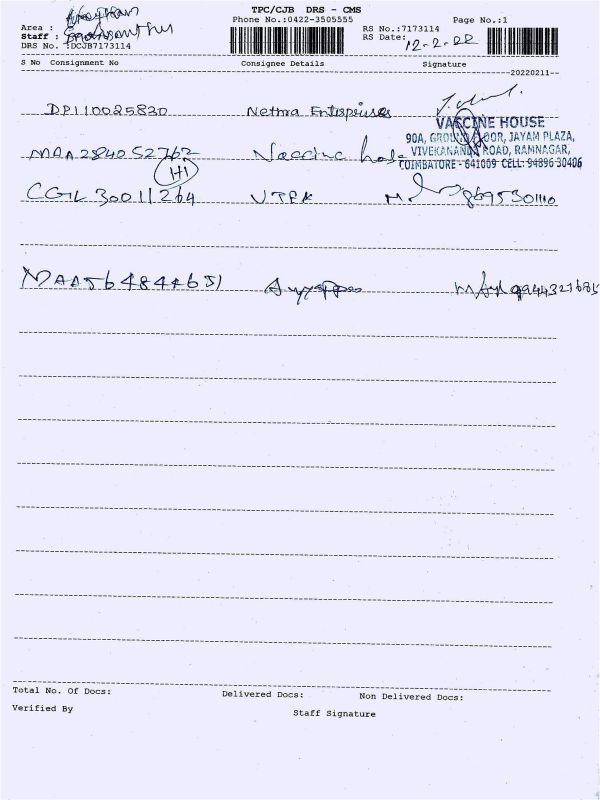 TPC/CJB DRS - CMS
Phone No.:0422-3505555
Page No.:1
Area :
Staff :
RS No.:7173114
RS Date: 12-2-22
DRS No. :DCJB7173114
S No Consignment No Consignee Details Signature
20220211
DP110025830 Netma Enterprises
VACCINE HOUSE
90A, GROUND FLOOR, JAYAM PLAZA,
VIVEKANANDA ROAD, RAMNAGAR,
COIMBATORE - 641009 CELL: 94896 30406
MAA284052762 Vaccine house
CGL30011264 8695301110
MAA564844651 Ayyappa 9944321685
Total No. Of Docs: Delivered Docs: Non Delivered Docs:
Verified By Staff Signature